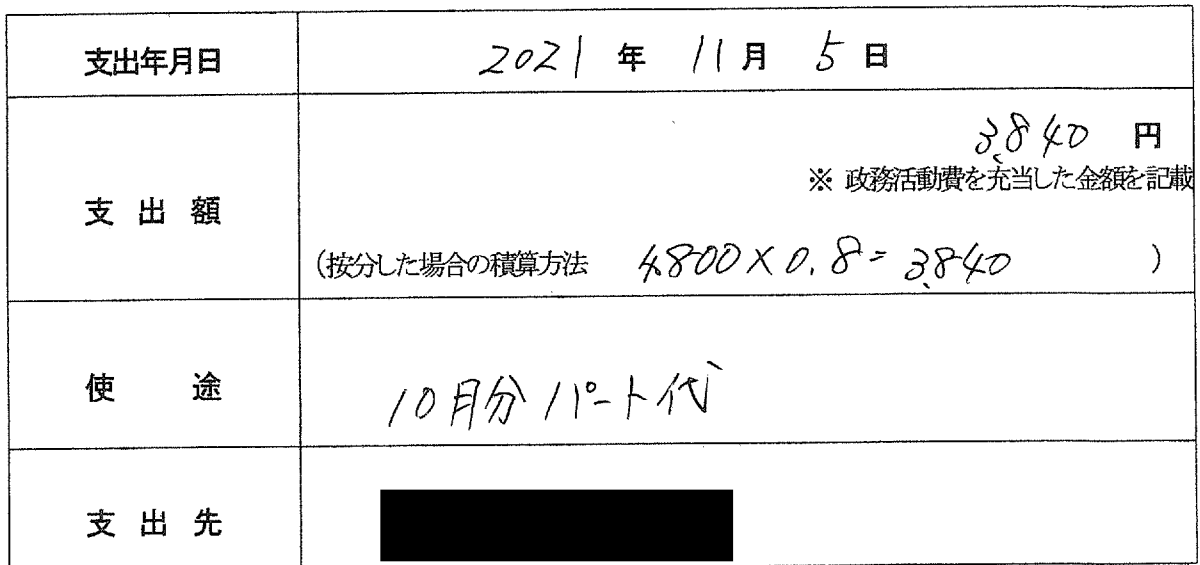 支出年月日 2021 年 11 月 5 日
3,840 円
※ 政務活動費を充当した金額を記載
支出額
(按分した場合の積算方法 4,800×0.8=3,840 )
使途 10月分パート代
支出先